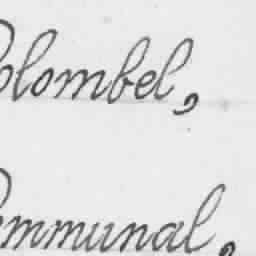 Colombel,
Communal,